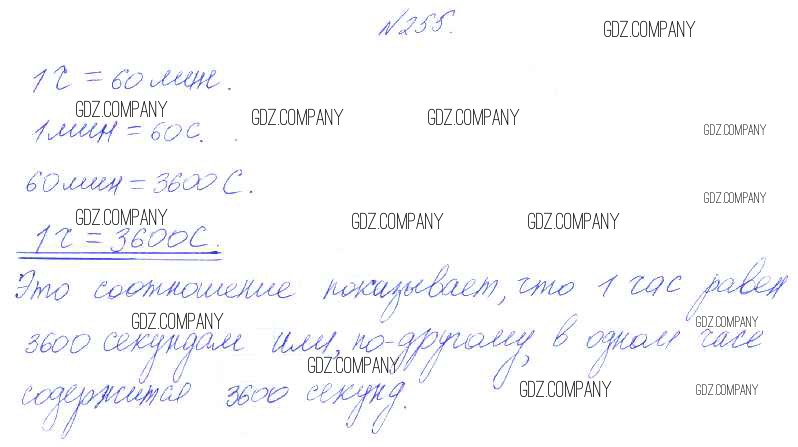 №255.
GDZ.COMPANY
1 ч = 60 мин.
GDZ.COMPANY GDZ.COMPANY GDZ.COMPANY
1 мин = 60 с.
GDZ.COMPANY
60 мин = 3600 с.
GDZ.COMPANY
GDZ.COMPANY GDZ.COMPANY GDZ.COMPANY
1 ч = 3600 с.
Это соотношение показывает, что 1 час равен
GDZ.COMPANY GDZ.COMPANY
3600 секундам или, по-другому, в одном часе
GDZ.COMPANY
содержится 3600 секунд.
GDZ.COMPANY GDZ.COMPANY